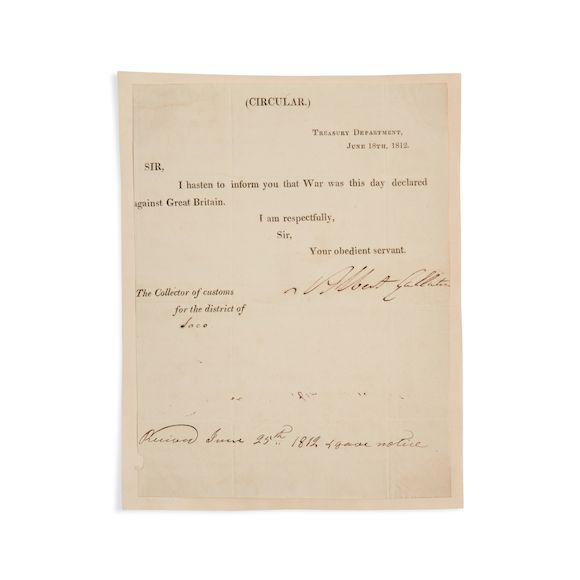 (CIRCULAR.)
TREASURY DEPARTMENT,
JUNE 18TH, 1812.
SIR,
I hasten to inform you that War was this day declared
against Great Britain.
I am respectfully,
Sir,
Your obedient servant.
Albert Gallatin
The Collector of customs
for the district of
Saco
Received June 25th 1812 & gave notice